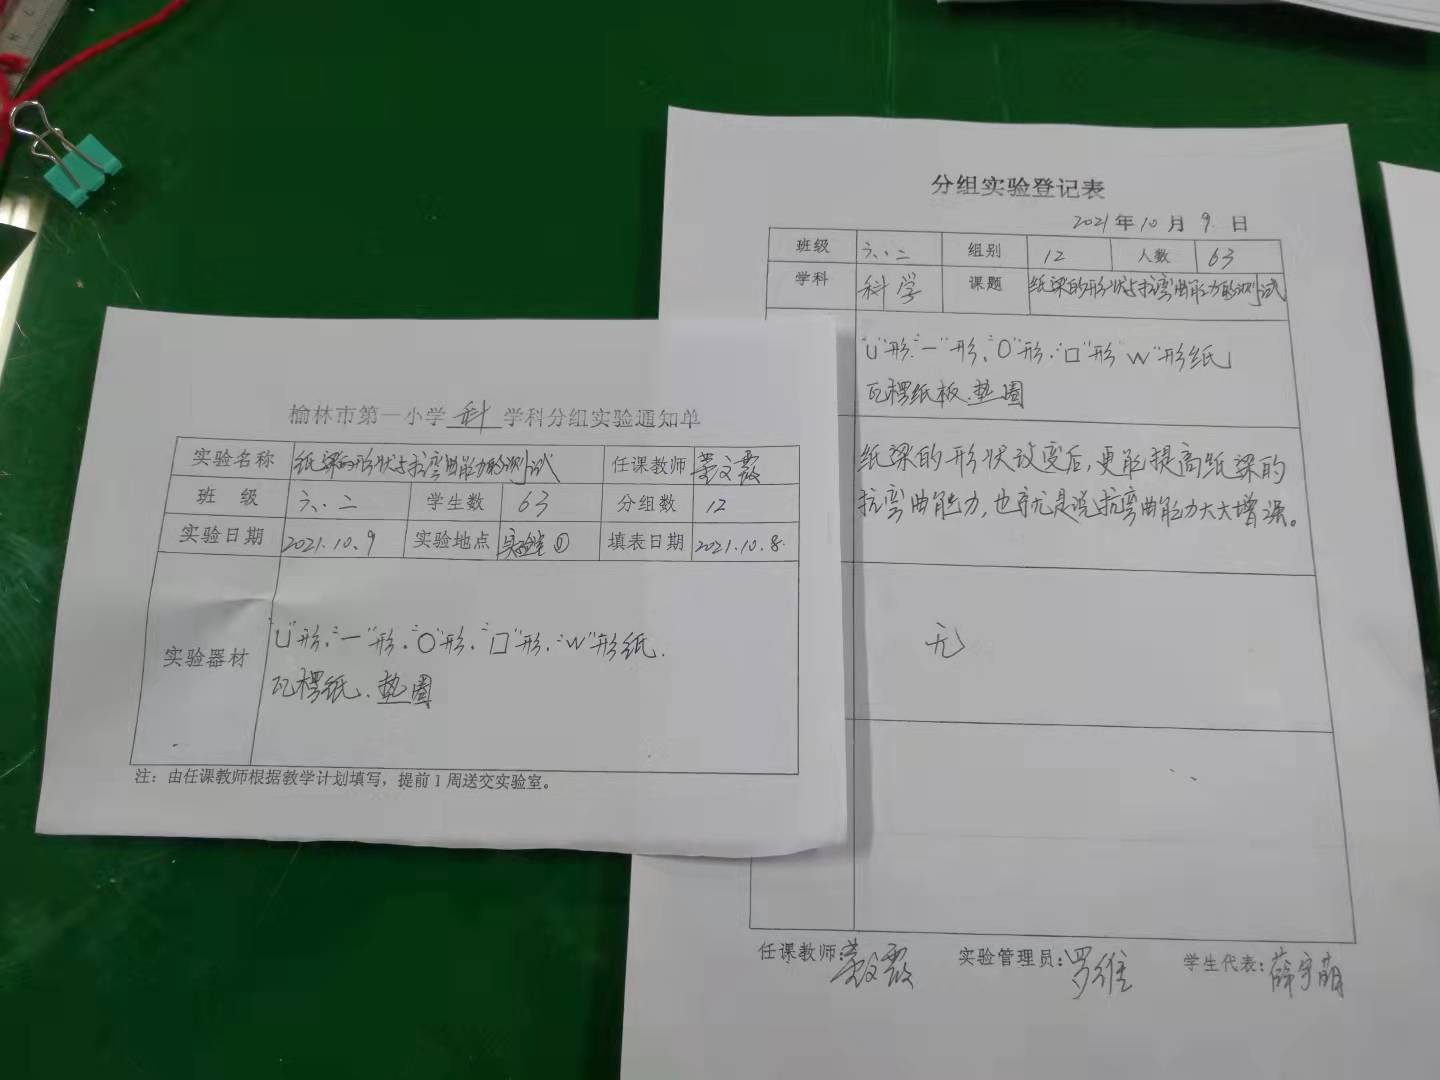 榆林市第一小学 科 学科分组实验通知单
实验名称 纸梁的形状与抗弯曲能力的测试 任课教师
班 级 六.二 学生数 63 分组数 12
实验日期 2021.10.9 实验地点 实验室① 填表日期 2021.10.8.
实验器材
"U"形、"一"形、"O"形、"口"形、"W"形纸.
瓦楞纸、垫圈
注：由任课教师根据教学计划填写，提前1周送交实验室。
分组实验登记表
2021年10月9日
班级 六.二 组别 12 人数 63
学科 科学 课题 纸梁的形状与抗弯曲能力的测试
"U"形、"一"形、"O"形、"口"形"W"形纸
瓦楞纸板、垫圈
纸梁的形状改变后,更能提高纸梁的
抗弯曲能力,也就是说抗弯曲能力大大增强。
无
任课教师: 实验管理员:罗维 学生代表:薛宇萌